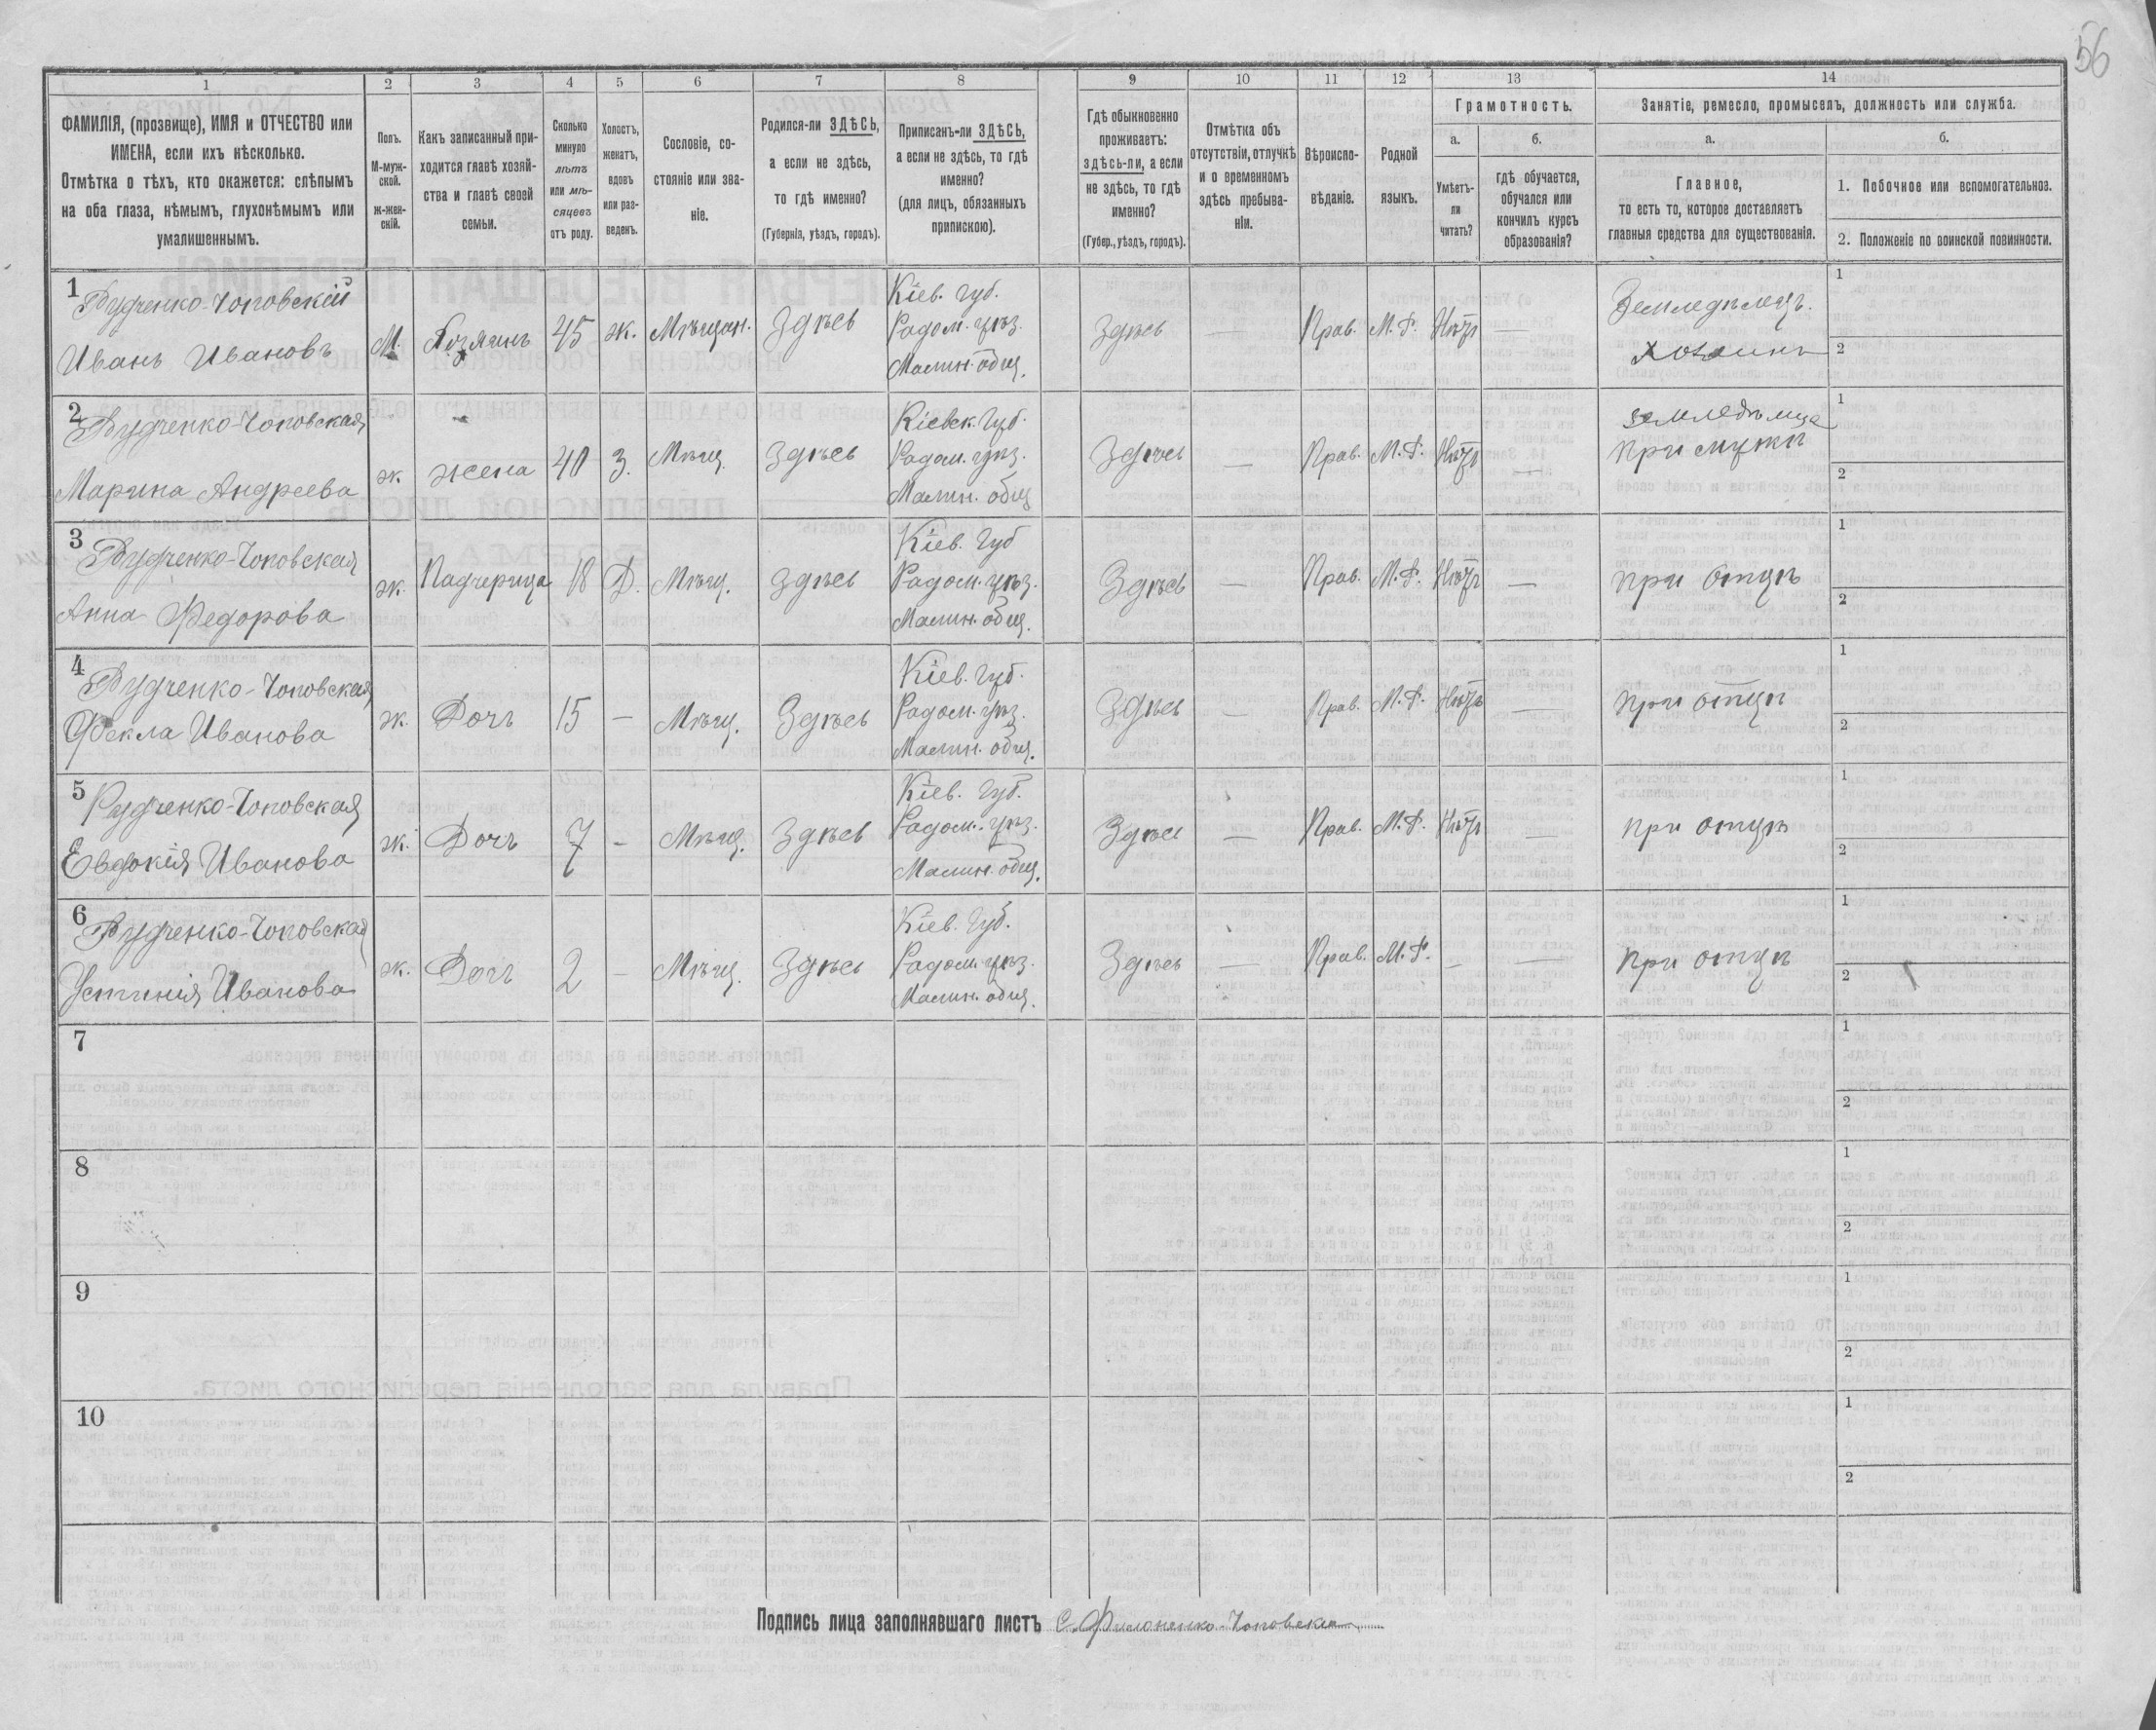 56
1 2 3 4 5 6 7 8 9 10 11 12 13 14
ФАМИЛІЯ, (прозвище), ИМЯ и ОТЧЕСТВО или
ИМЕНА, если ихъ нѣсколько.
Отмѣтка о тѣхъ, кто окажется: слѣпымъ
на оба глаза, нѣмымъ, глухонѣмымъ или
умалишеннымъ.
Полъ.
М-муж-
ской.
ж-жен-
скій.
Какъ записанный при-
ходится главѣ хозяй-
ства и главѣ своей
семьи.
Сколько
минуло
лѣтъ
или мѣ-
сяцевъ
отъ роду.
Холостъ,
женатъ,
вдовъ
или раз-
веденъ.
Сословіе, со-
стояніе или зва-
ніе.
Родился-ли ЗДѢСЬ,
а если не здѣсь,
то гдѣ именно?
(Губернія, уѣздъ, городъ).
Приписанъ-ли ЗДѢСЬ,
а если не здѣсь, то гдѣ
именно?
(для лицъ, обязанныхъ
припискою).
Гдѣ обыкновенно
проживаетъ:
здѣсь-ли, а если
не здѣсь, то гдѣ
именно?
(Губер., уѣздъ, городъ).
Отмѣтка объ
отсутствіи, отлучкѣ
и о временномъ
здѣсь пребыва-
ніи.
Вѣроиспо-
вѣданіе.
Родной
языкъ.
Грамотность.
а.
Умѣетъ-
ли
читать?
б.
гдѣ обучается,
обучался или
кончилъ курсъ
образованія?
Занятіе, ремесло, промыселъ, должность или служба.
а.
Главное,
то есть то, которое доставляетъ
главныя средства для существованія.
б.
1. Побочное или вспомогательное.
2. Положеніе по воинской повинности.
1
Рудченко-Чоповскій
Иванъ Ивановъ
М. Хозяинъ 45 ж. Мѣщан. Здѣсь
Кіев. Губ.
Радом. уѣз.
Малин. общ.
Здѣсь — Прав. М.Р. Нѣтъ —
Земледѣлецъ.
хозяинъ
1
2
2
Рудченко-Чоповская
Марина Андреева
ж жена 40 З. Мѣщ. Здѣсь
Кіевск. Губ.
Радом. уѣз.
Малин. общ
Здѣсь — Прав. М.Р. Нѣтъ —
земледѣлица
При мужѣ
1
2
3
Рудченко-Чоповская
Анна Федорова
ж. Падчерица 18 Д. Мѣщ. Здѣсь
Кіев. Губ
Радом. уѣз.
Малин. общ.
Здѣсь — Прав. М.Р. Нѣтъ —
при отцѣ
1
2
4
Рудченко-Чоповская
Фекла Иванова
ж. Дочь 15 — Мѣщ. Здѣсь
Кіев. Губ.
Радом. уѣз.
Малин. общ.
Здѣсь — Прав. М.Р. Нѣтъ —
при отцѣ
1
2
5
Рудченко-Чоповская
Евдокія Иванова
ж. Дочь 7 - Мѣщ. Здѣсь
Кіев. Губ.
Радом. уѣз.
Малин. общ.
Здѣсь — Прав. М.Р. Нѣтъ —
при отцѣ
1
2
6
Рудченко-Чоповская
Устинія Иванова
ж. Дочь 2 — Мѣщ. Здѣсь
Кіев. Губ.
Радом. уѣз.
Малин. общ.
Здѣсь — Прав. М.Р. — —
при отцѣ
1
2
7
1
2
8
1
2
9
1
2
10
1
2
Подпись лица заполнявшаго листъ С. Филоненко-Чоповскій